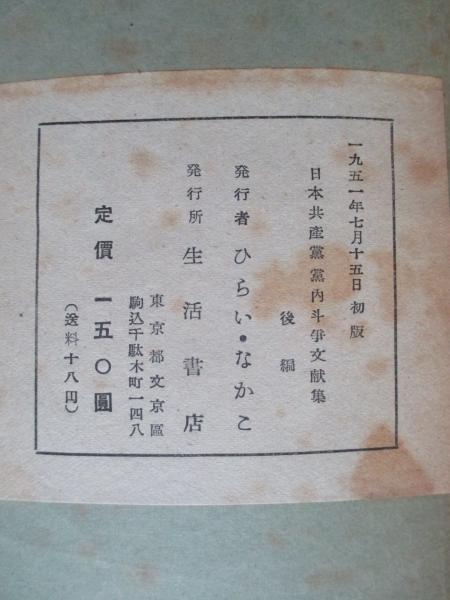 一九五一年七月十五日 初版
日本共產黨黨內斗爭文献集
後編
発行者 ひらい・なかこ
発行所 生活書店
東京都文京區
駒込千駄木町一四八
定價 一五〇圓
（送料十八円）